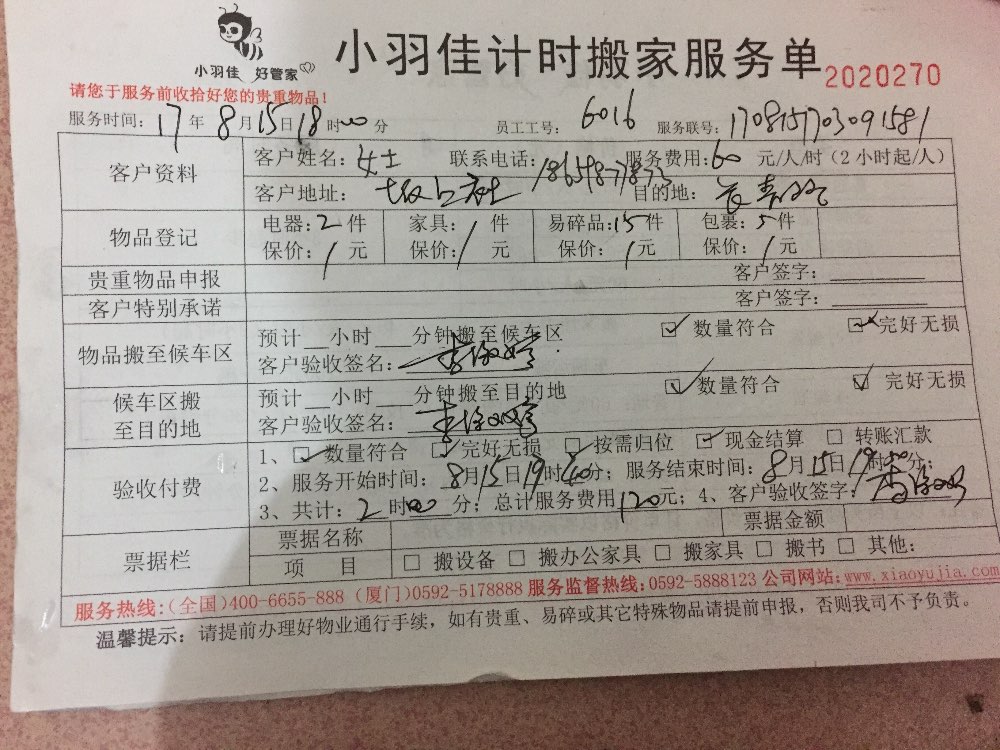 小羽佳 好管家
小羽佳计时搬家服务单 2020270
请您于服务前收拾好您的贵重物品!
服务时间: 17 年 8 月 15 日 18 时 00 分 员工工号: 6016 服务联号: 1708157703091581
客户资料 客户姓名: 女士 联系电话: 服务费用: 60 元/人/时 (2 小时起/人)
客户地址: 坂上社 目的地:
物品登记 电器: 2 件 家具: / 件 易碎品: 15 件 包裹: 5 件
保价: / 元 保价: / 元 保价: / 元 保价: / 元
贵重物品申报 客户签字:
客户特别承诺 客户签字:
物品搬至候车区 预计__小时___分钟搬至候车区 ☑ 数量符合 ☑ 完好无损
客户验收签名:
候车区搬至目的地 预计__小时___分钟搬至目的地 ☑ 数量符合 ☑ 完好无损
客户验收签名:
验收付费 1、☑ 数量符合 ☑ 完好无损 ☐ 按需归位 ☑ 现金结算 ☐ 转账汇款
2、服务开始时间: 8月15日19时40分; 服务结束时间: 8月15日19时50分;
3、共计: 2 时00 分; 总计服务费用120元; 4、客户验收签字:
票据栏 票据名称 票据金额
项 目 ☐ 搬设备 ☐ 搬办公家具 ☐ 搬家具 ☐ 搬书 ☐ 其他:
服务热线:(全国)400-6655-888 (厦门)0592-5178888 服务监督热线:0592-5888123 公司网站:www.xiaoyujia.com
温馨提示: 请提前办理好物业通行手续, 如有贵重、易碎或其它特殊物品请提前申报, 否则我司不予负责。